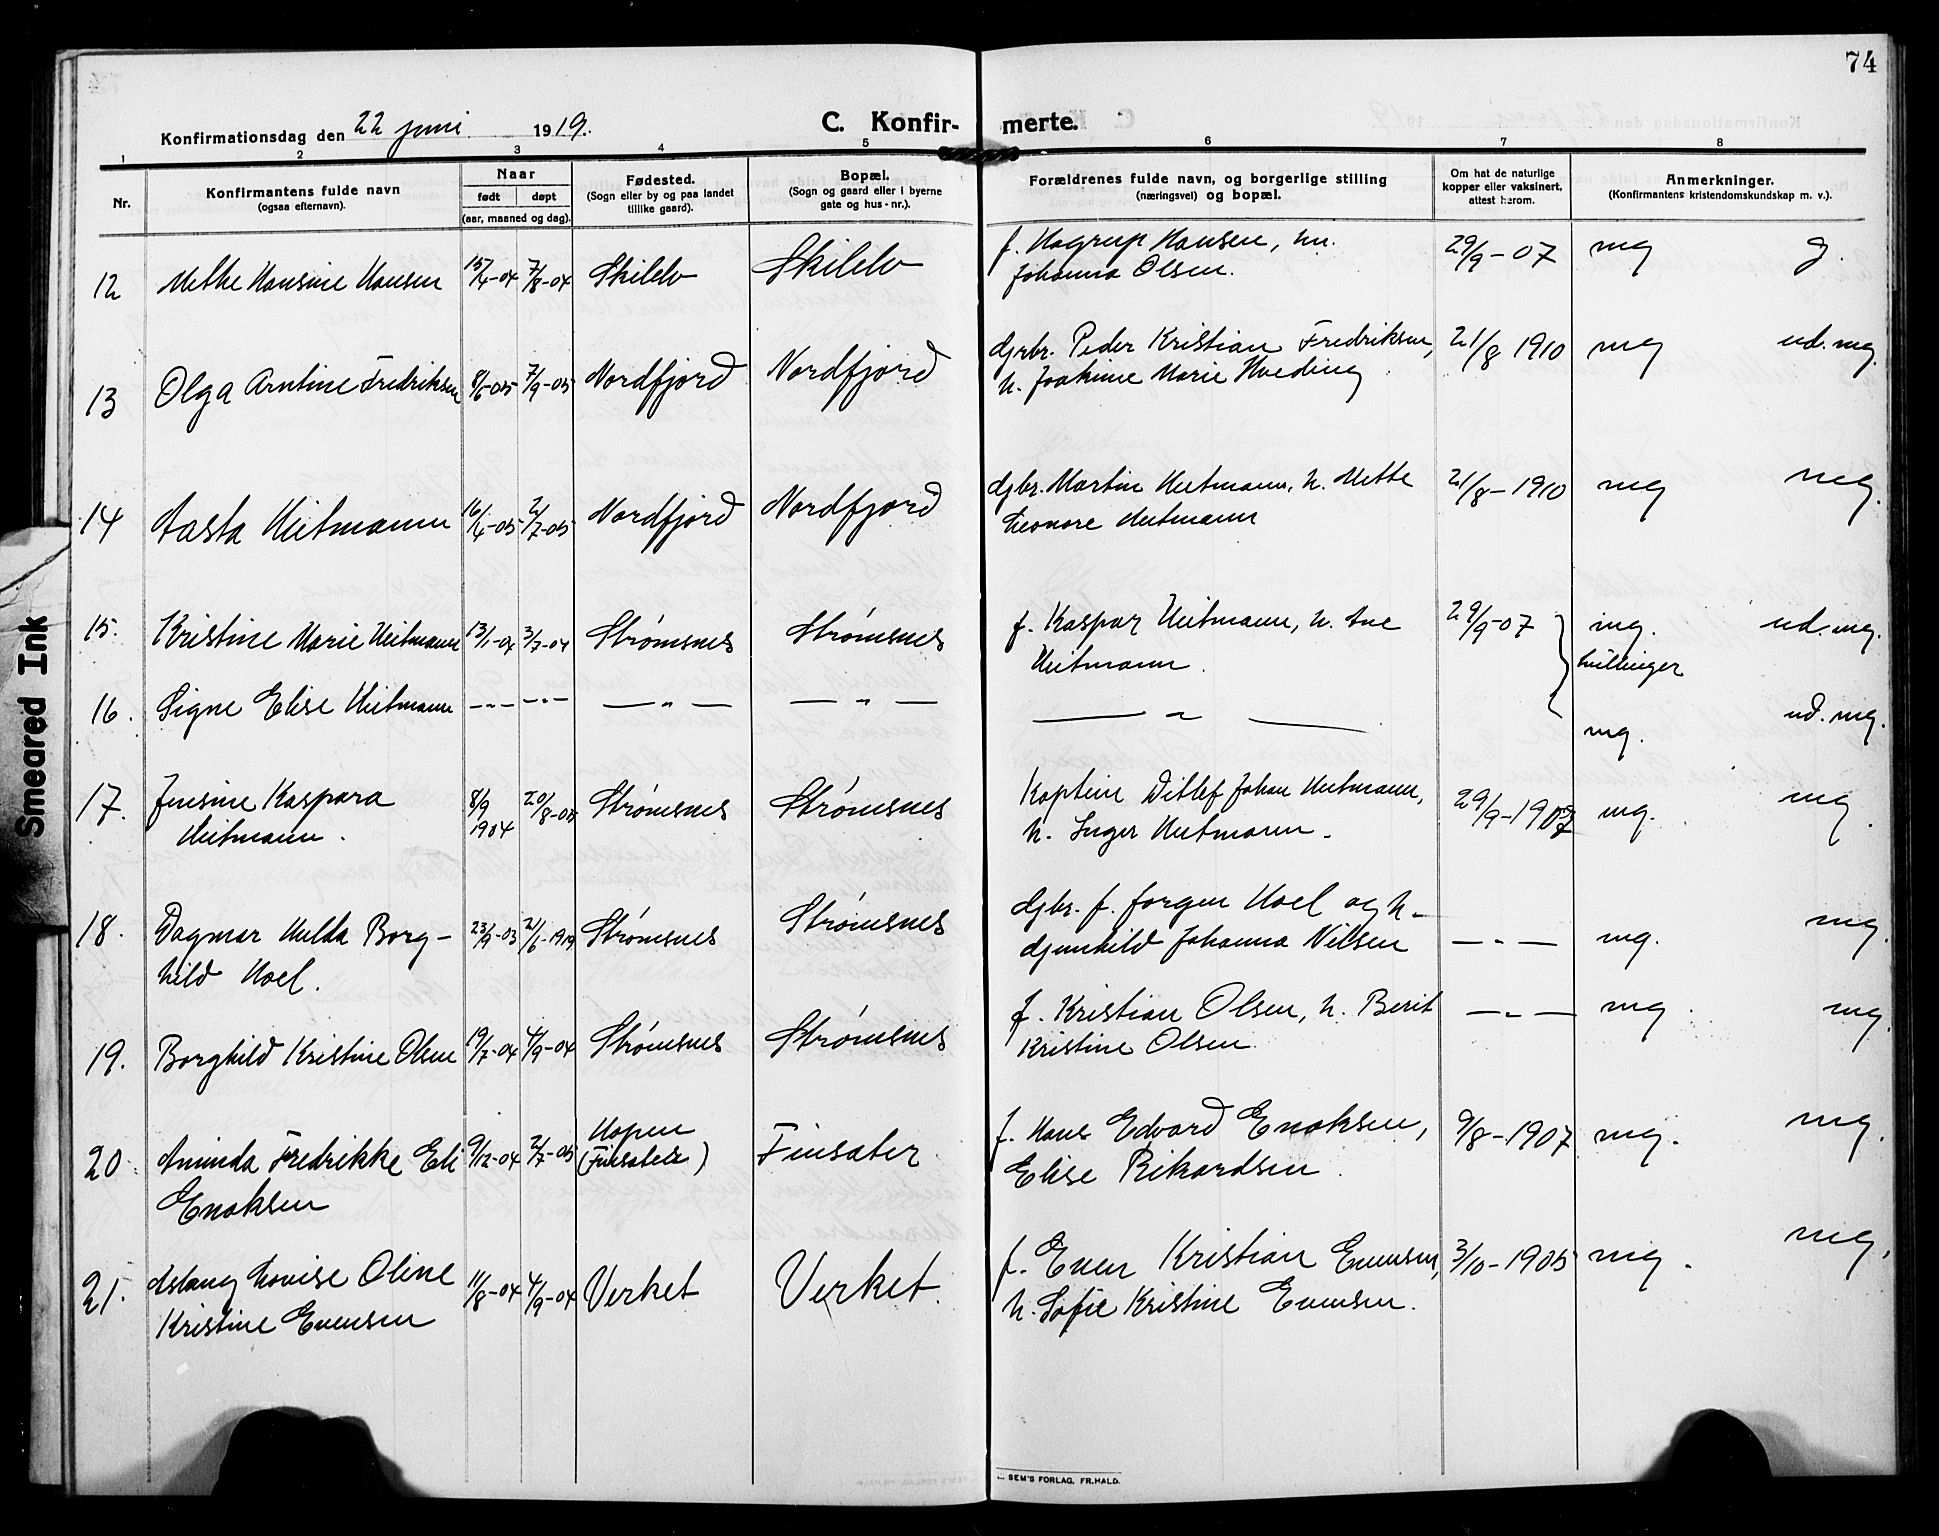 74
Konfirmationsdag den 22 juni 1919.
C. Konfir- merte.
1 2 3 4 5 6 7 8
Nr.
Konfirmantens fulde navn
(ogsaa efternavn).
Naar
født døpt
(aar, maaned og dag).
Fødested.
(Sogn eller by og paa landet
tillike gaard).
Bopæl.
(Sogn og gaard eller i byerne
gate og hus-nr.).
Forældrenes fulde navn, og borgerlige stilling
(næringsvei) og bopæl.
Om hat de naturlige
kopper eller vaksinert,
attest herom.
Anmerkninger.
(Konfirmantens kristendomskundskap m. v.).
12 Mette Hansine Hansen 15/4-04 7/8-04 Skilelv Skilelv f. Hagrup Hansen, hu. 29/9-07 mg g.
Johanna Olsen.
13 Olga Arntine Fredriksen 8/6-05 7/9-05 Nordfjord Nordfjord Gjrbr. Peder Kristian Fredriksen, 21/8 1910 mg ud. mg.
h. Joakime Marie Hveding
14 Aasta Heitmann 16/4-05 2/7-05 Nordfjord Nordfjord Gjbr. Martin Heitmann, h. Mette 21/8-1910 mg meg.
Leonore Heitmann
15. Kristine Marie Heitmann 13/1-04 3/7-04 Strømsnes Strømsnes f. Kaspar Heitmann, h. Ane 29/9-07 mg. ud. mg.
Heitmann. tvillinger
16. Signe Elise Heitmann -"- -"- — " — — " — — " — mg. ud. mg.
17. Jensine Kaspara 8/9 1904 20/8-05 Strømsnes Strømsnes Kaptein Ditlef Johan Heitmann, 29/9-1907 mg. mg.
Heitmann. h. Inger Heitmann.
18. Dagmar Hulda Borg- 23/9-03 2/6-1919 Strømsnes Strømsnes Gjbr. f. Jørgen Hoel og h. — " — mg. mg.
hild Hoel. Gjunhild Johanna Nilsen
19. Borghild Kristine Olsen 19/7-04 4/9-04 Strømsnes Strømsnes f. Kristian Olsen, h. Berit — " — mg. mg.
Kristine Olsen
20 Aminda Fredrikke Eli 9/12-04 2/7-05 Hopen Finsæter f. Hans Edvard Enoksen, 9/8-1907 mg. mg.
Enoksen (Finsæter) Elise Rikardsen.
21. Aslaug Lovise Oline 11/8-04 4/9-04 Verket Verket. f. Even Kristian Evensen, 3/10-1905 mg. mg.
Kristine Evensen h. Sofie Kristine Evensen.
SEM'S FORLAG. FR. HALD.
Smeared Ink